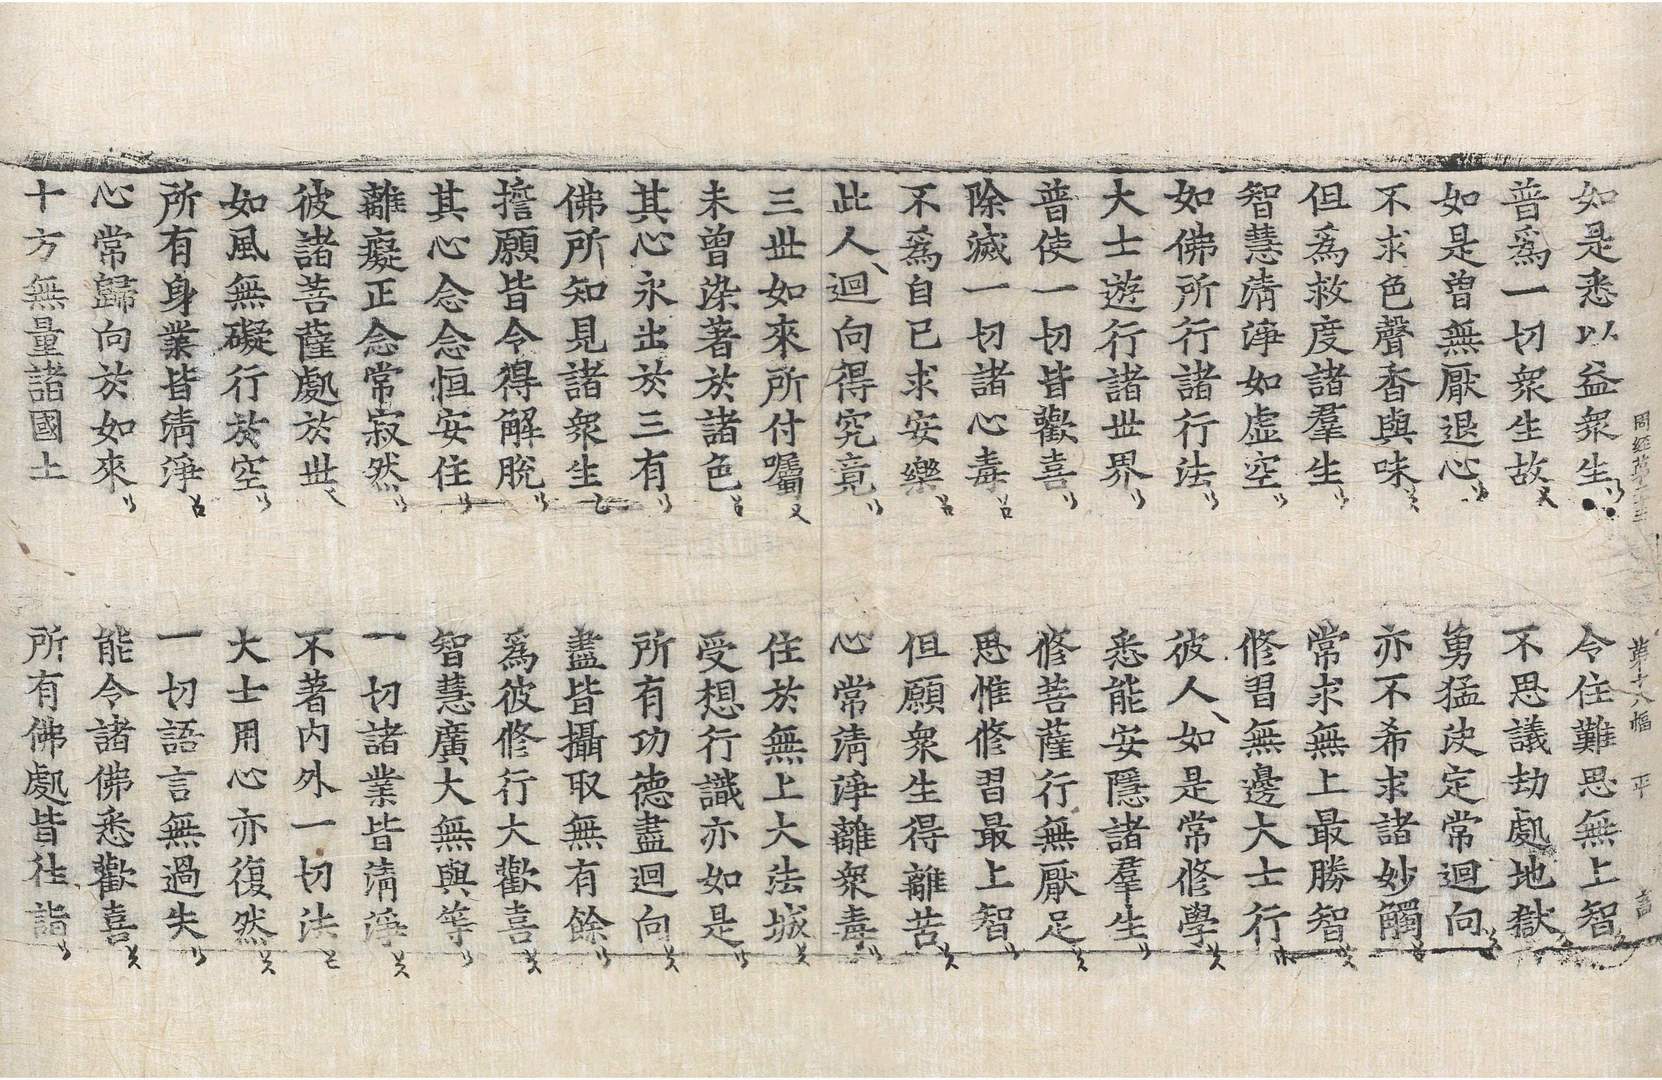 周經苐二十三
苐十八幅 平
如是悉以益衆生 令住難思無上智
普爲一切衆生故 不思議劫處地獄
如是曾無厭退心 勇猛决定常迴向
不求色聲香與味 亦不希求諸妙觸
但爲救度諸羣生 常求無上最勝智
智慧清淨如虛空 修習無邊大士行
如佛所行諸行法 彼人如是常修學
大士遊行諸世界 悉能安隱諸羣生
普使一切皆歡喜 修菩薩行無厭足
除滅一切諸心毒 思惟修習最上智
不爲自己求安樂 但願衆生得離苦
此人迴向得究竟 心常清淨離衆毒
三世如來所付囑 住於無上大法城
未曾染著於諸色 受想行識亦如是
其心永出於三有 所有功德盡迴向
佛所知見諸衆生 盡皆攝取無有餘
擔願皆令得解脫 爲彼修行大歡喜
其心念念恒安住 智慧廣大無與等
離癡正念常寂然 一切諸業皆清淨
彼諸菩薩處於世 不著內外一切法
如風無礙行於空 大士用心亦復然
所有身業皆清淨 一切語言無過失
心常歸向於如來 能令諸佛悉歡喜
十方無量諸國土 所有佛處皆往詣